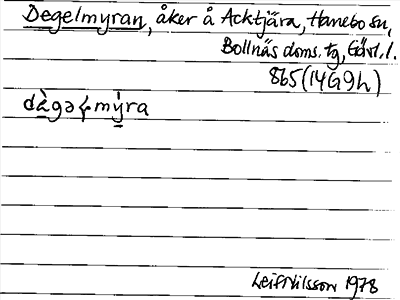 Degelmyran, åker å Acktjära, Hanebo sn,
Bollnäs doms. tg, Gävl. l.
865 (14G9h)
dàgəɬmỳra
Leif Nilsson 1978